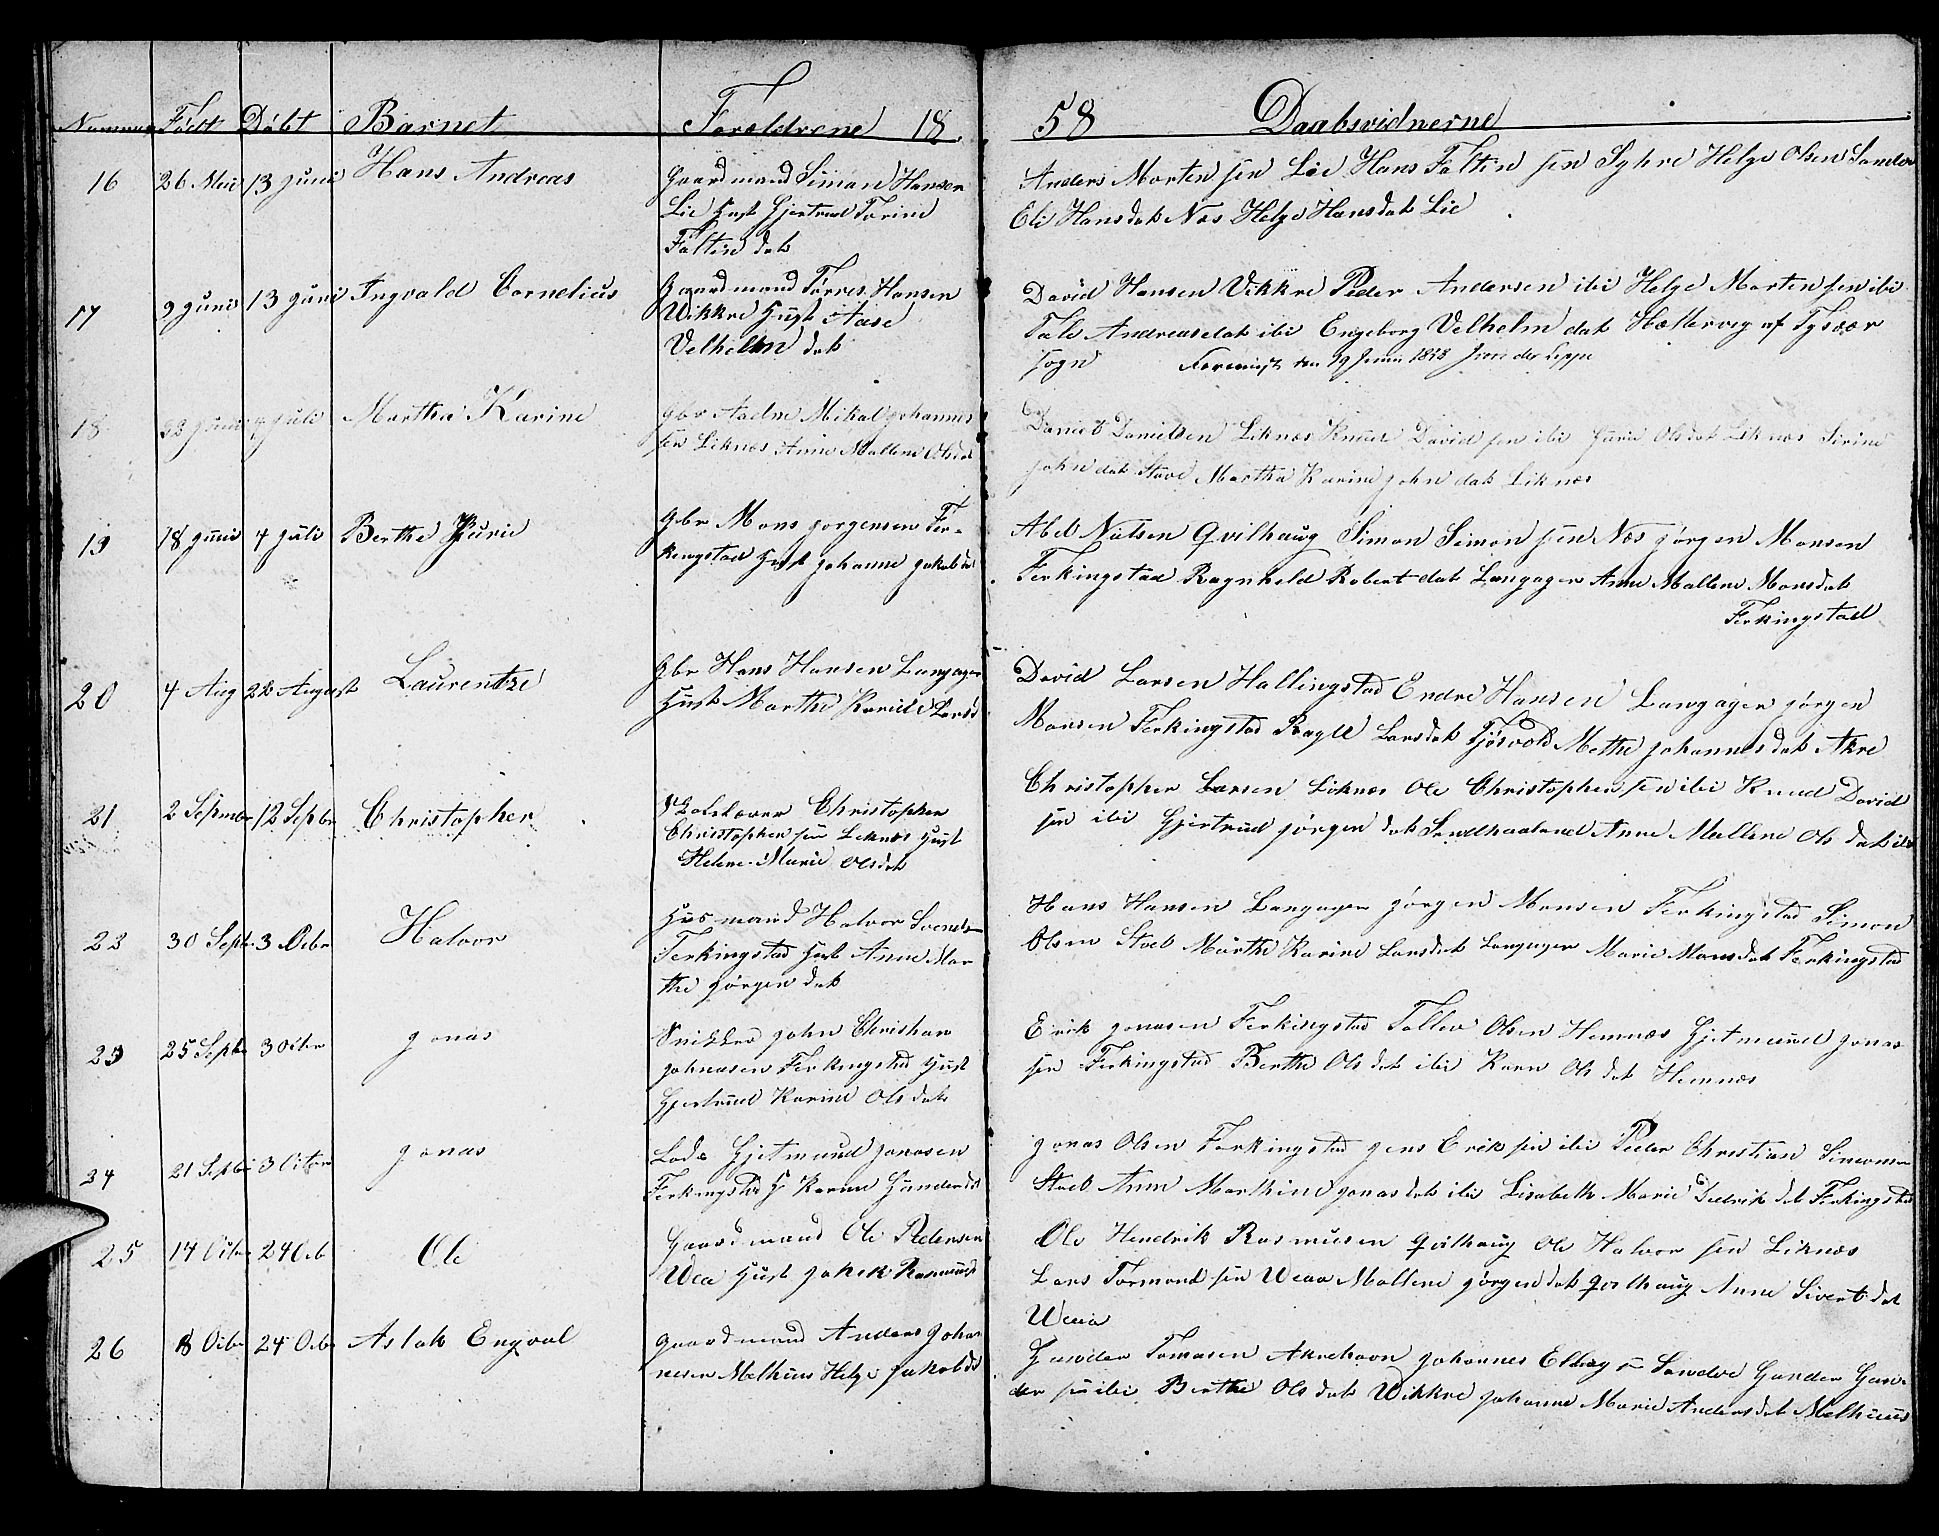 Nummer Født Døbt Barnet Forældrene 18 58 Daabsvidnerne
16 26 Mai 13 Juni Hans Andreas
Gaardmand Simon Hansen
Lie Hust Gjertrud Torine
Faltin dat
Anders Morten sen Lie Hans Faltin sen Syhre Helge Olsen Sandve
Eli Hansdat Næs Helge Hansdat Lie
17 9 Juni 13 Juni Ingvald Cornelius
Gaardmand Tørres Hansen
Vikkre Hust Aase
Velhelm dat
David Hansen Vikkre Peder Andersen ibi Helge Morten sen ibi
Tale Andreasdat ibi Engeborg Velhelm dat Hættervig af Tysvær
Sogn
18 22 Juni 4 Juli Martha Karine
Gbr Mikal Johannes
sen Liknæs Anne Mallene Olsdat
Daniel Danielsen Liknæs Knud David sen ibi Jurie Olsdat Liknæs Sirine
John dat Stave Martha Karine John dat Liknæs
19 18 Juni 4 Juli Berthe Jurie
Gbr Mons Jørgensen Fer-
kingstad Hust Johanne Jakobsd
Abel Nilsen Qvilhaug Simon Simon sen Næs Jørgen Monsen
Ferkingstad Ragnheld Robert dat Langager Anne Mallene Monsdat
Ferkingstad
20 4 Aug 22 August Laurentze
Gbr Hans Hansen Langager
Hust Marthe Karine Larsd
David Larsen Hallingstad Endre Hansen Langager Jørgen
Monsen Ferkingstad Larsdat Tjøsvold Methe Johannesdat Akre
21 2 Septmbr 12 Septbr Christopher
Skolelærer Christopher
Christopher sen Liknæs Hust
Helene Marie Olsdat
Christopher Larsen Liknæs Ole Christopher sen ibi Knud David
sen ibi Gjertrud Jørgen dat Sandhaaland Anne Mallene Ols dat ibi
22 30 Septr 3 Octbr Halvor
Husmand Halvor Svends
Ferkingstad Hust Anne Mar
the Jørgen dat
Hans Hansen Langager Jørgen Monsen Ferkingstad Simon
Olsen Stol Marthe Karine Larsdat Langager Marie Monsdat Ferkingstad
23 25 Septbr 3 Octbr Jonas
Snikker John Christian
Johnasen Ferkingstad Hust
Gjertrud Karine Ols dat
Erik Jonasen Ferkingstad Tollev Olsen Hemnæs Gjetmund Jonas
sen Ferkingstad Berthe Ols dat ibi Karn Ols dat Hemnæs
24 21 Septbr 3 Octbr Jonas
Lods Gjetmund Jonasen
Ferkingstad H Karine Gunderdt
Jonas Olsen Ferkingstad Jens Erik sen ibi Peder Christian Simonsen
Stol Anne Marthine Jonasdat ibi Lisabeth Marie Didrik dat Ferkingstad
25 14 Octbr 24 Oct Ole
Gaardmand Ole Pedersen
Wea Hust Rasmusdt
Ole Hendrik Rasmusen Qvilhaug Ole Halvor sen Liknæs
Lars Tormond sen Weaa Mallene Jørgen dat Qvilhaug Anne Sivert dat
Weaa
26 8 Octbr 24 Octbr Aslak Engval
Gaardmand Anders Johan
nesen Melhuus Helge Jakobdt
Gunder Tomasen Akrehavn Johannes Sandve Gunder Gun
der sen ibi Berthe Ols dat Wikkre Johanne Marie Andersdat Melhuus